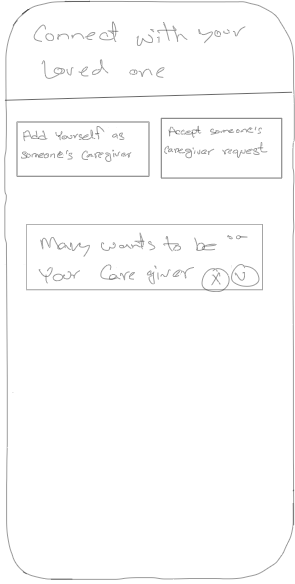 Connect with your
Loved one
Add Yourself as
someone's Caregiver
Accept someone's
caregiver request
Mary wants to be
Your Care giver X